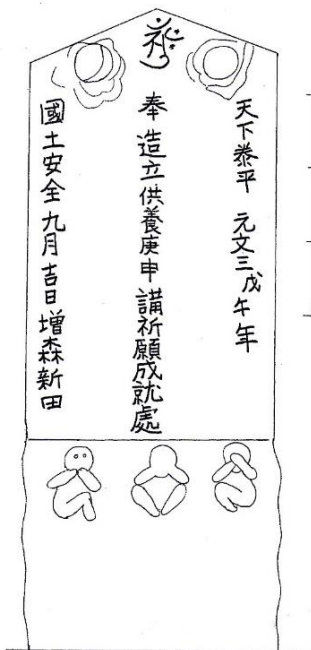 天下泰平 元文三戊午年
奉造立供養庚申講祈願成就處
國土安全九月吉日増森新田